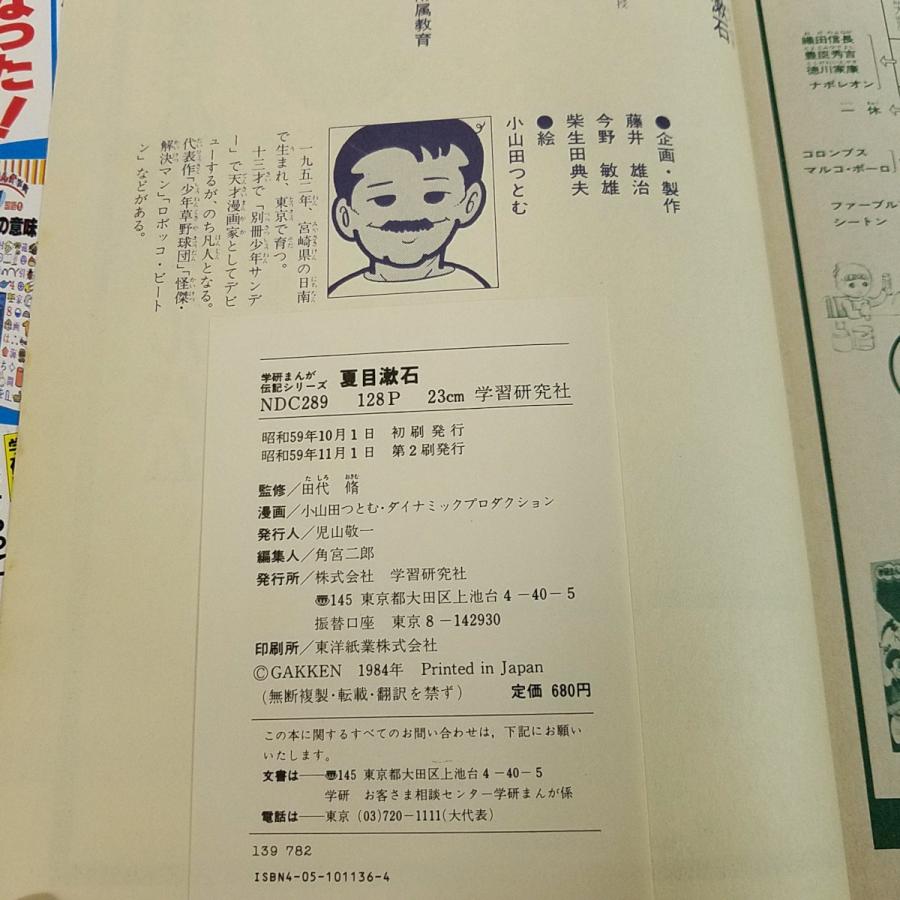 漱石
属教育
●企画・製作
藤井 雄治
今野 敏雄
柴生田典夫
●絵
小山田つとむ
一九五二年、宮崎県の日南
で生まれ、東京で育つ。
十三才で「別冊少年サンデ
ー」で天才漫画家としてデビ
ューするが、のち凡人となる。
代表作「少年草野球団」「怪傑・
解決マン」「ロボッコ・ビート
ン」などがある。
学研まんが
伝記シリーズ 夏目漱石
NDC289 128P 23cm 学習研究社
昭和59年10月1日 初刷発行
昭和59年11月1日 第2刷発行
監修/田代 脩
漫画/小山田つとむ・ダイナミックプロダクション
発行人/児山敬一
編集人/角宮二郎
発行所/株式会社 学習研究社
〠145 東京都大田区上池台4-40-5
振替口座 東京8-142930
印刷所/東洋紙業株式会社
©GAKKEN 1984年 Printed in Japan
(無断複製・転載・翻訳を禁ず) 定価 680円
この本に関するすべてのお問い合わせは、下記にお願い
いたします。
文書は──〠145 東京都大田区上池台4-40-5
学研 お客さま相談センター学研まんが係
電話は──東京 (03)720-1111(大代表)
139 782
ISBN4-05-101136-4
織田信長
豊臣秀吉
徳川家康
ナポレオン
一休
コロンブス
マルコ・ポーロ
ファーブル
シートン
なった!
の意味